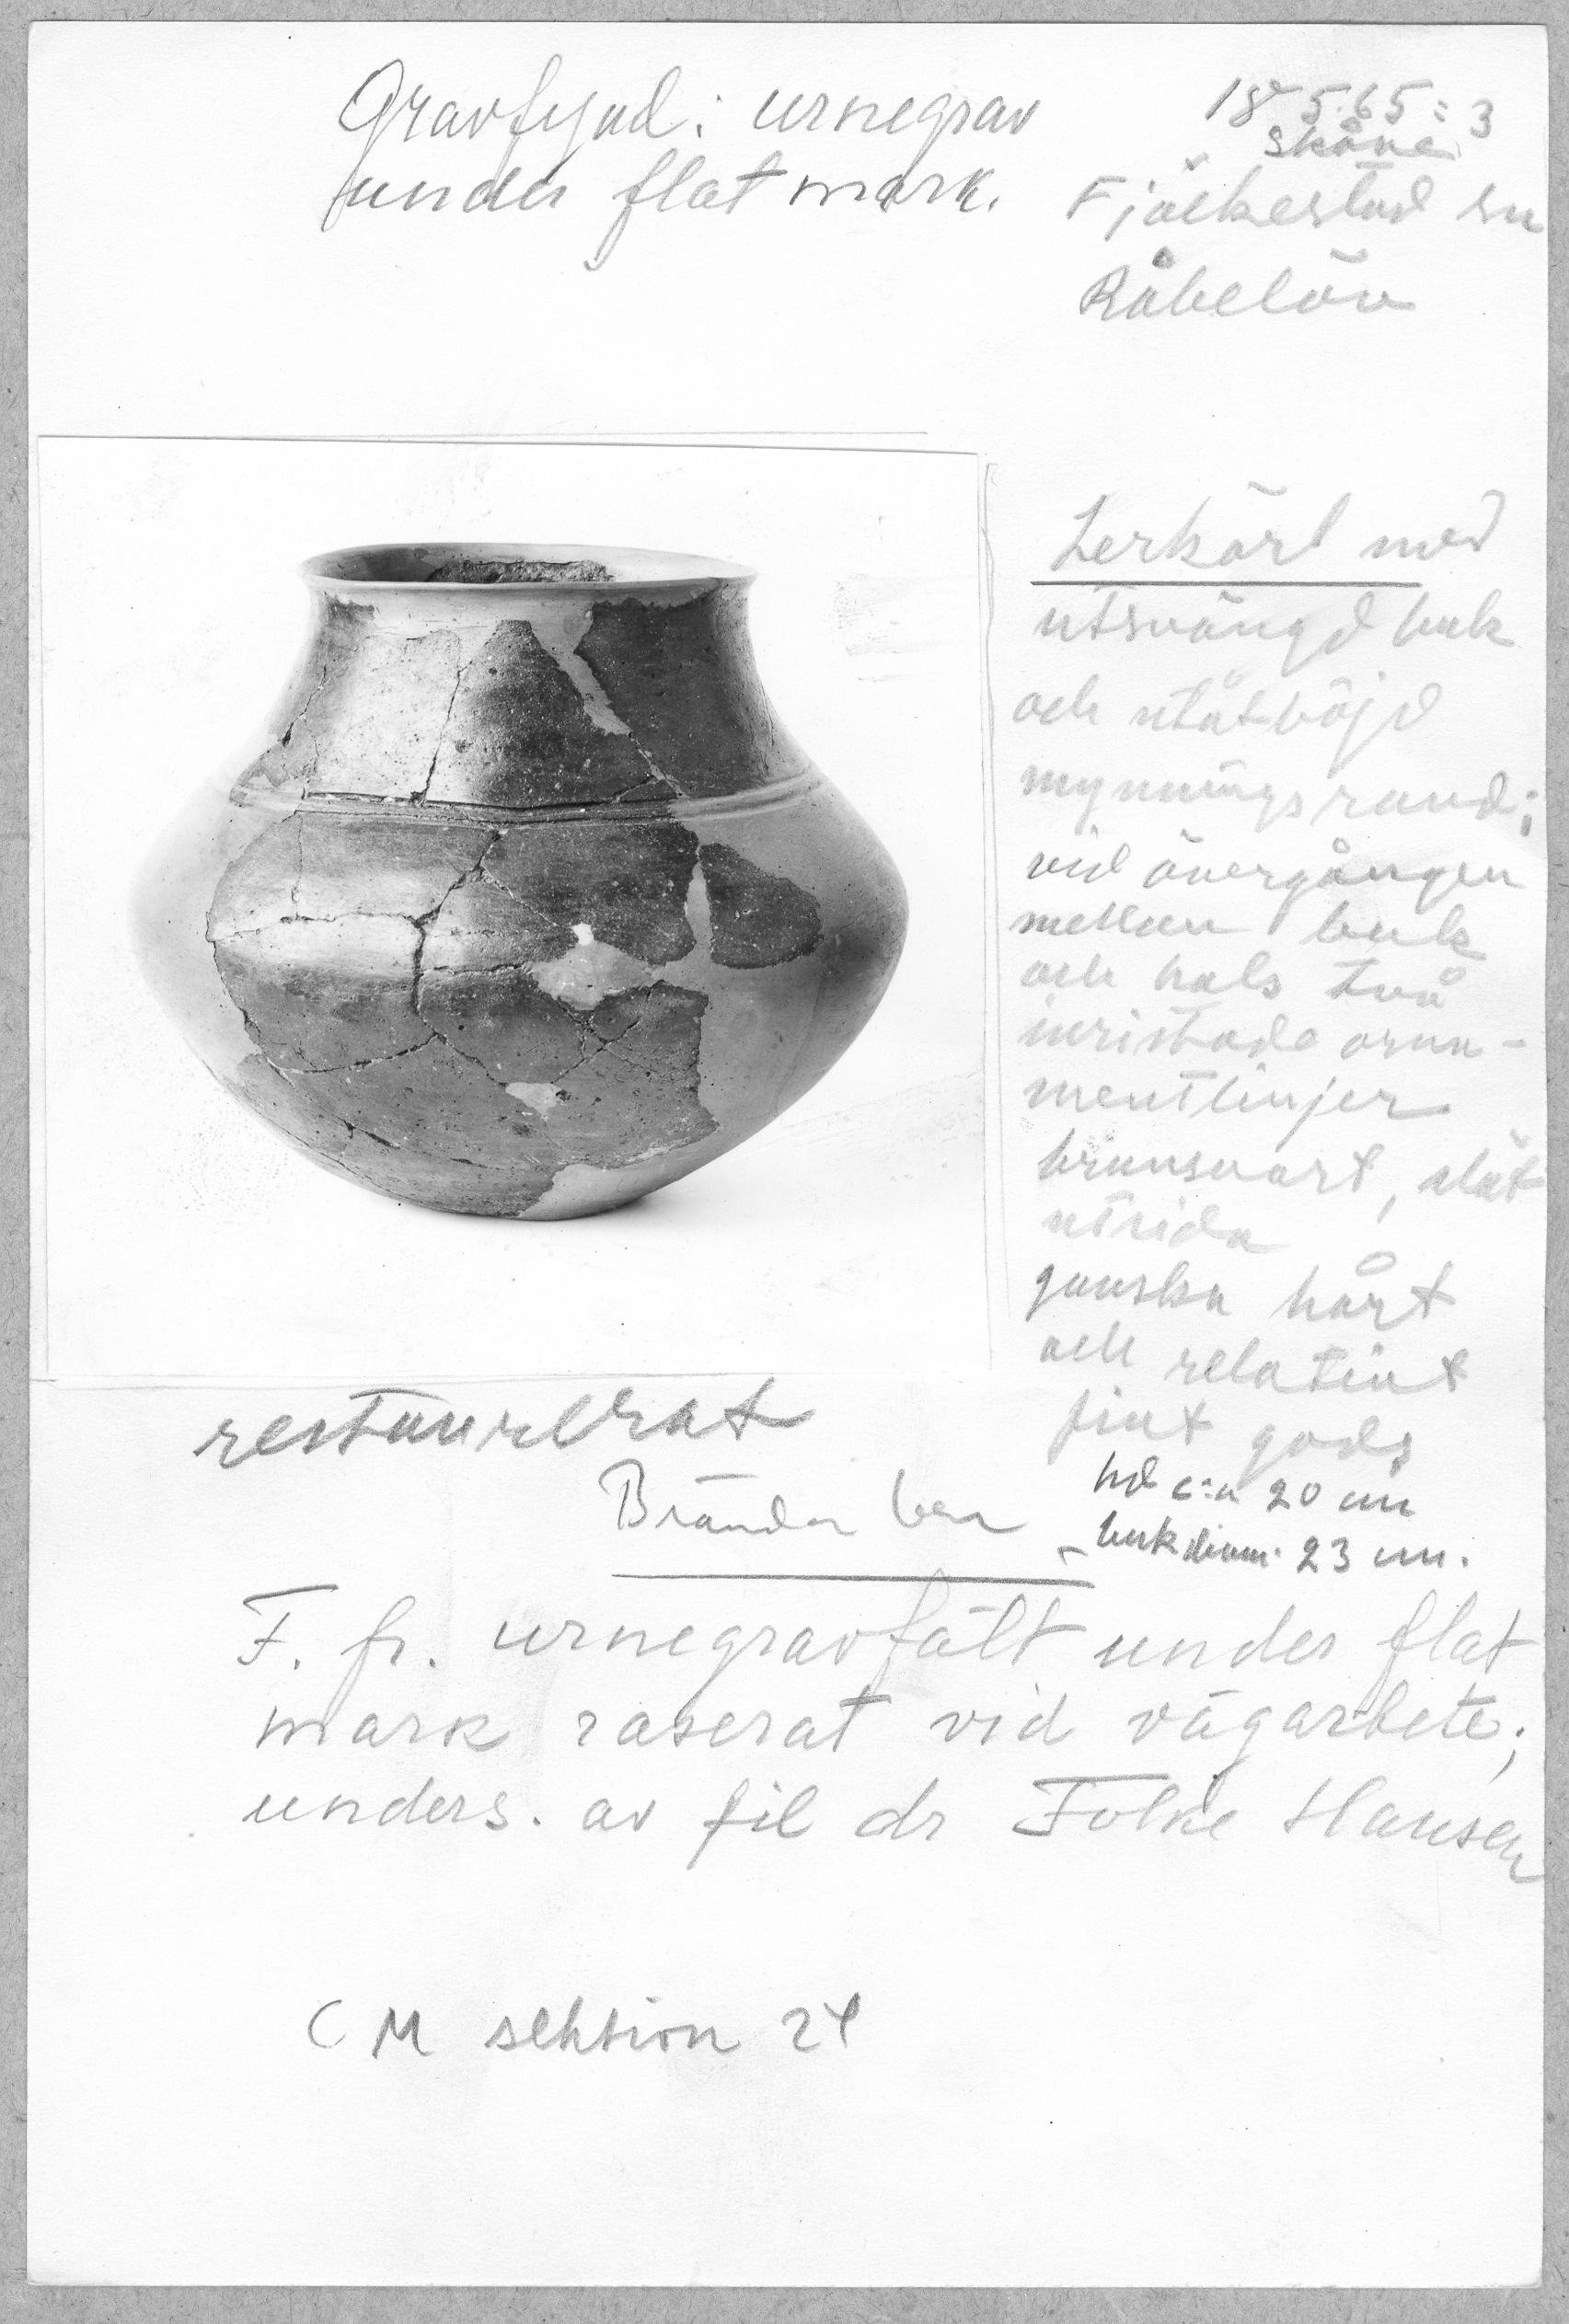 Gravfynd: urnegrav
under flat mark.
18 5.65:3
Skåne
Fjälkestad sn
Råbelöv
Lerkärl med
utsvängd buk
och utåtböjd
mynningsrand;
vid övergången
mellan buk
och hals två
inristade orna-
mentlinjer
brunsvart, slät
utsida
ganska hårt
och relativt
fint gods
restaurerat
Brända ben
hd c:a 20 cm
bukdiam. 23 cm.
F. fr. urnegravfält under flat
mark raserat vid vägarbete;
unders. av fil dr Folke Hansen
CM sektion 24